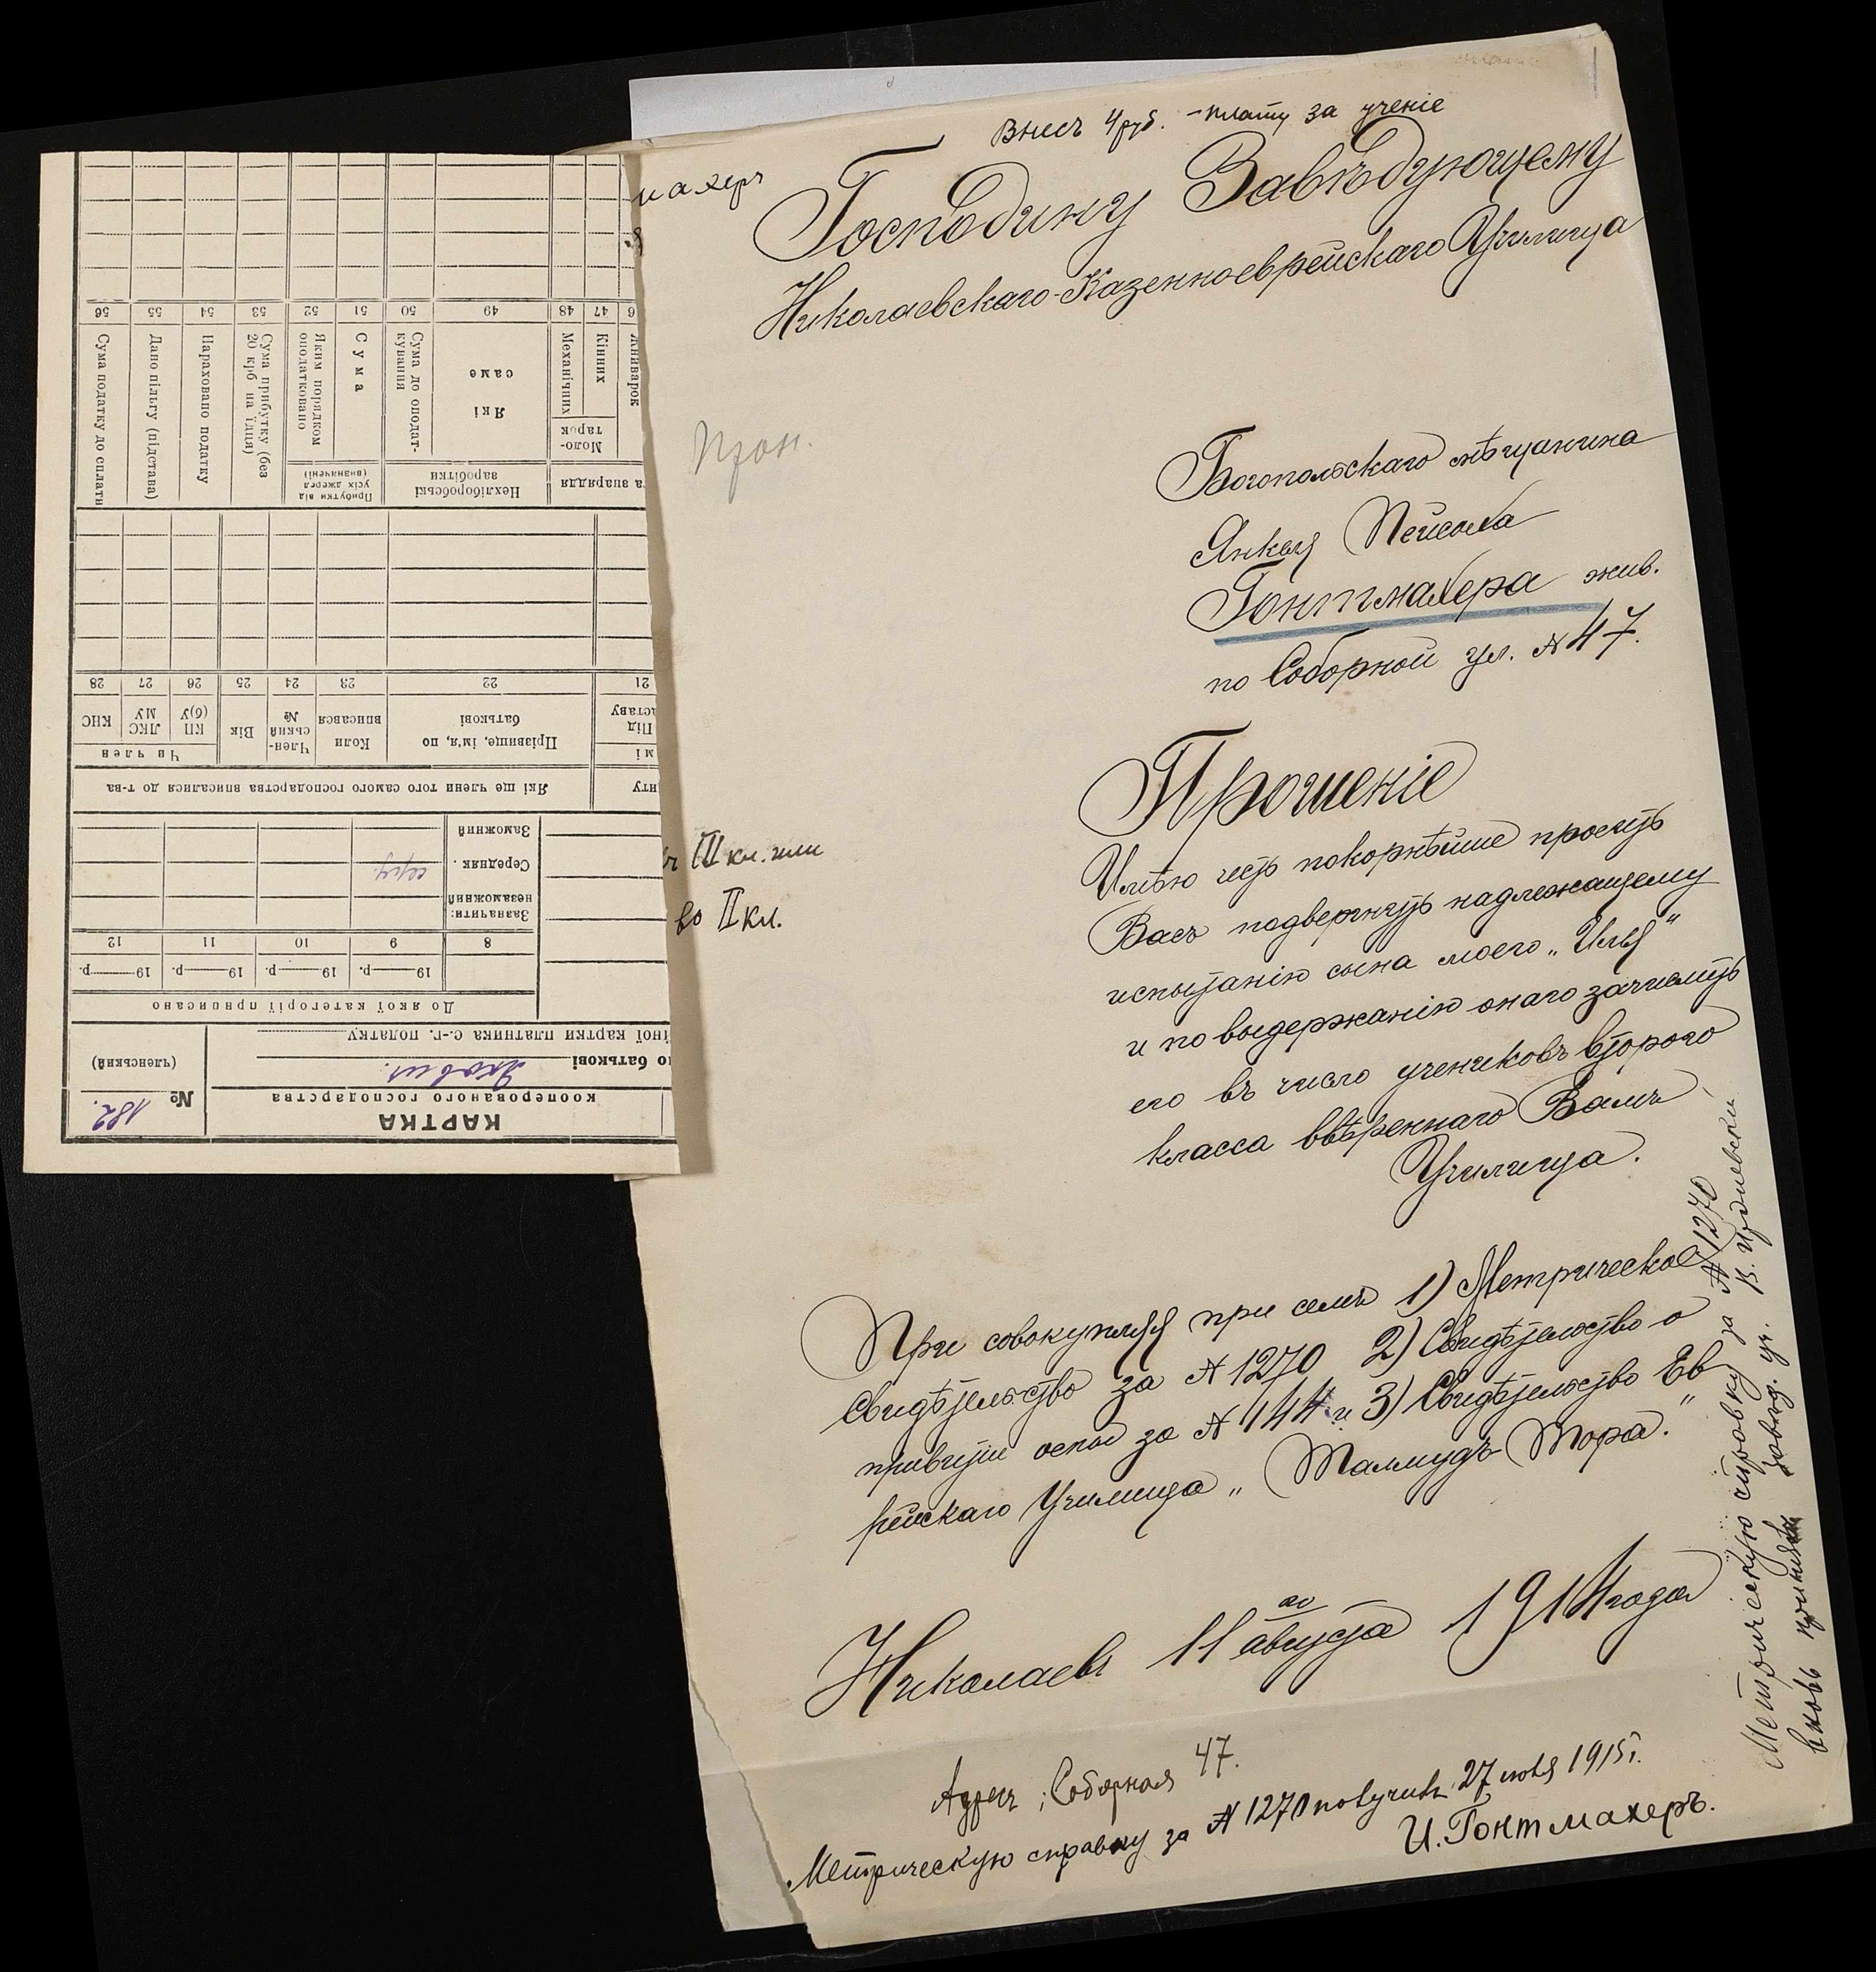 Внесъ 4 руб. - плату за ученіе
махеръ
Господину Завѣдующему
Николаевскаго-Казенноеврейскаго Училища
Богопольскаго мѣщанина
Янкеля Пейсаха
Гонтмахера жив.
по Соборной ул. № 47.
Прошеніе
Имѣю честь покорнѣйше просить
Васъ подвергнуть надлежащему
испытанію сына моего „Илья"
и по выдержанію онаго зачислить
его въ число учениковъ второго
класса ввѣреннаго Вамъ
Училища.
III кл. или
во II кл.
При совокупляя при семъ 1) Метрическое
Свидѣтельство за № 1270 2) Свидѣтельство о
прививти оспы за № 144 и 3) Свидѣтельство Ев
рейскаго Училища „Талмудъ-Тора."
Николаевъ 11 го августа 1914 года
Адресъ: Соборная 47.
Метрическую справку за № 1270 получилъ 27 іюля 1915 г.
И. Гонтмахеръ.
Метрическую справку за № 1270
вновь принялъ завѣд. уч. В.
КАРТКА
кооперованого господарства
№ 182.
(членський)
по батькові Яковил.
ної картки платника с.-г. податку
До якої категорії приписано
19 р. 19 р. 19 р. 19 р.
8 9 10 11 12
Зазначити:
незаможний
Середняк
Заможний
Які ще члени того самого господарства вписалися до т-ва
Прізвище, ім'я, по батькові
Коли вписався
Член-ський №
Вік
Чи член
КП (б)У
ЛКС МУ
КНС
21 22 23 24 25 26 27 28
знаряддя
Нехліборобські заробітки
Прибутки від усіх джерел (визначені)
Жниварок
Моло-тарок
Кінних
Механічних
Які саме
Сума до оподат-кування
Сума
Яким порядком оподатковано
Сума прибутку (без 20 крб на їдця)
Нараховано податку
Дано пільгу (підстава)
Сума податку до сплати
6 47 48 49 50 51 52 53 54 55 56